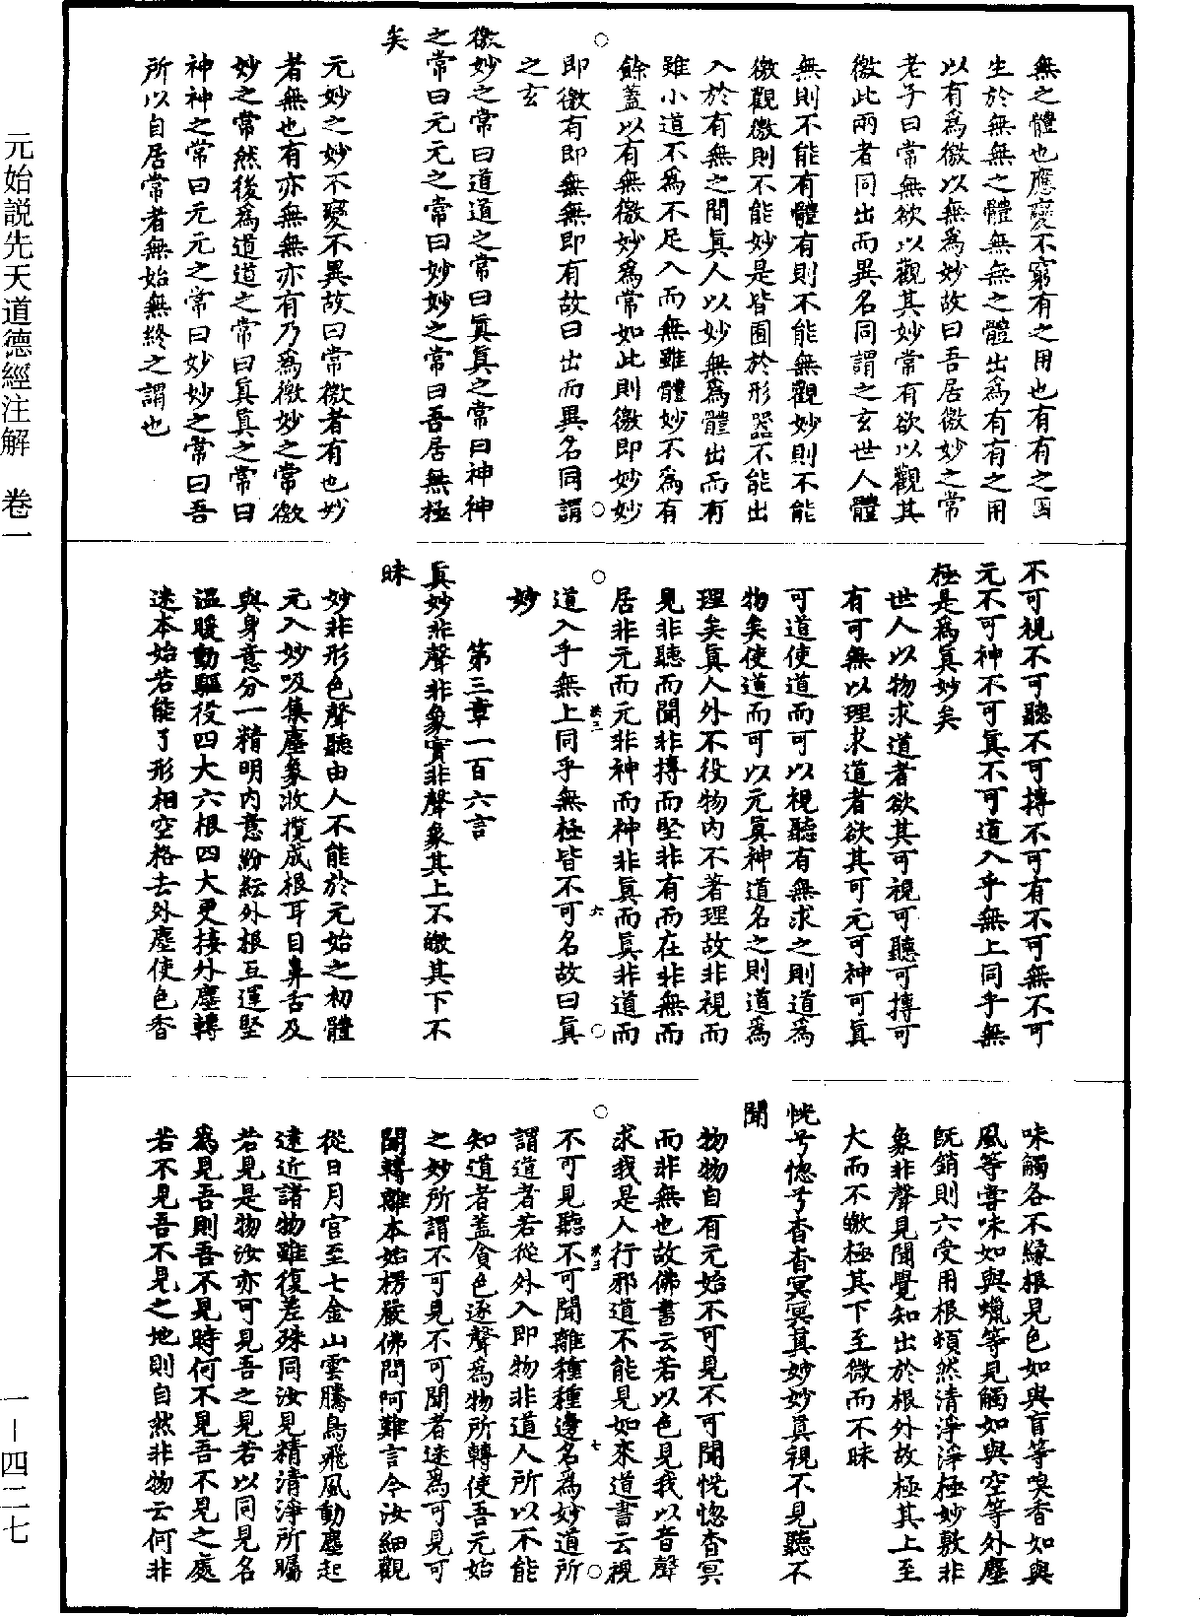 無之體也應變不窮有之用也有有之因
生於無無之體無無之體出爲有有之用
以有爲徼以無爲妙故曰吾居徼妙之常
老子曰常無欲以觀其妙常有欲以觀其
徼此兩者同出而異名同謂之玄世人體
無則不能有體有則不能無觀妙則不能
徼觀徼則不能妙是皆囿於形器不能出
入於有無之間眞人以妙無爲體出而有
雖小道不爲不足入而無雖體妙不爲有
餘蓋以有無徼妙爲常如此則徼即妙妙
即徼有即無無即有故曰出而異名同謂
之玄
徼妙之常曰道道之常曰眞眞之常曰神神
之常曰元元之常曰妙妙之常曰吾居無極
矣
元妙之妙不變不異故曰常徼者有也妙
者無也有亦無無亦有乃爲徼妙之常徼
妙之常然後爲道道之常曰眞眞之常曰
神神之常曰元元之常曰妙妙之常曰吾
所以自居常者無始無終之謂也
不可視不可聽不可摶不可有不可無不可
元不可神不可眞不可道入乎無上同乎無
極是爲眞妙矣
世人以物求道者欲其可視可聽可摶可
有可無以理求道者欲其可元可神可眞
可道使道而可以視聽有無求之則道爲
物矣使道而可以元眞神道名之則道爲
理矣眞人外不役物內不著理故非視而
見非聽而聞非摶而堅非有而在非無而
居非元而元非神而神非眞而眞非道而
道入乎無上同乎無極皆不可名故曰眞
妙
第三章一百六言
眞妙非聲非象實非聲象其上不皦其下不
昧
妙非形色聲聽由人不能於元始之初體
元入妙吸集塵象收攬成根耳目鼻舌及
與身意分一精明內意紛紜外根互運堅
溫暖動驅役四大六根四大更接外塵轉
迷本始若能了形相空格去外塵使色香
味觸各不緣根見色如與盲等嗅香如與
風等嘗味如與蠟等見觸如與空等外塵
旣銷則六受用根頓然清淨淨極妙敷非
象非聲見聞覺知出於根外故極其上至
大而不皦極其下至微而不昧
恍兮惚兮杳杳冥冥其妙妙眞視不見聽不
聞
物物自有元始不可見不可聞恍惚杳冥
而非無也故佛書云若以色見我以音聲
求我是人行邪道不能見如來道書云視
不可見聽不可聞離種種邊名爲妙道所
謂道者若從外入即物非道人所以不能
知道者蓋貪色逐聲爲物所轉使吾元始
之妙所謂不可見不可聞者迷爲可見可
聞轉離本始楞嚴佛問阿難言今汝細觀
從日月宮至七金山雲騰鳥飛風動塵起
遠近諸物雖復差殊同汝見精清淨所矚
若見是物汝亦可見吾之見若以同見名
爲見吾則吾不見時何不見吾不見之處
若不見吾不見之地則自然非物云何非
元始説先天道德經注解　卷一
一－四二七